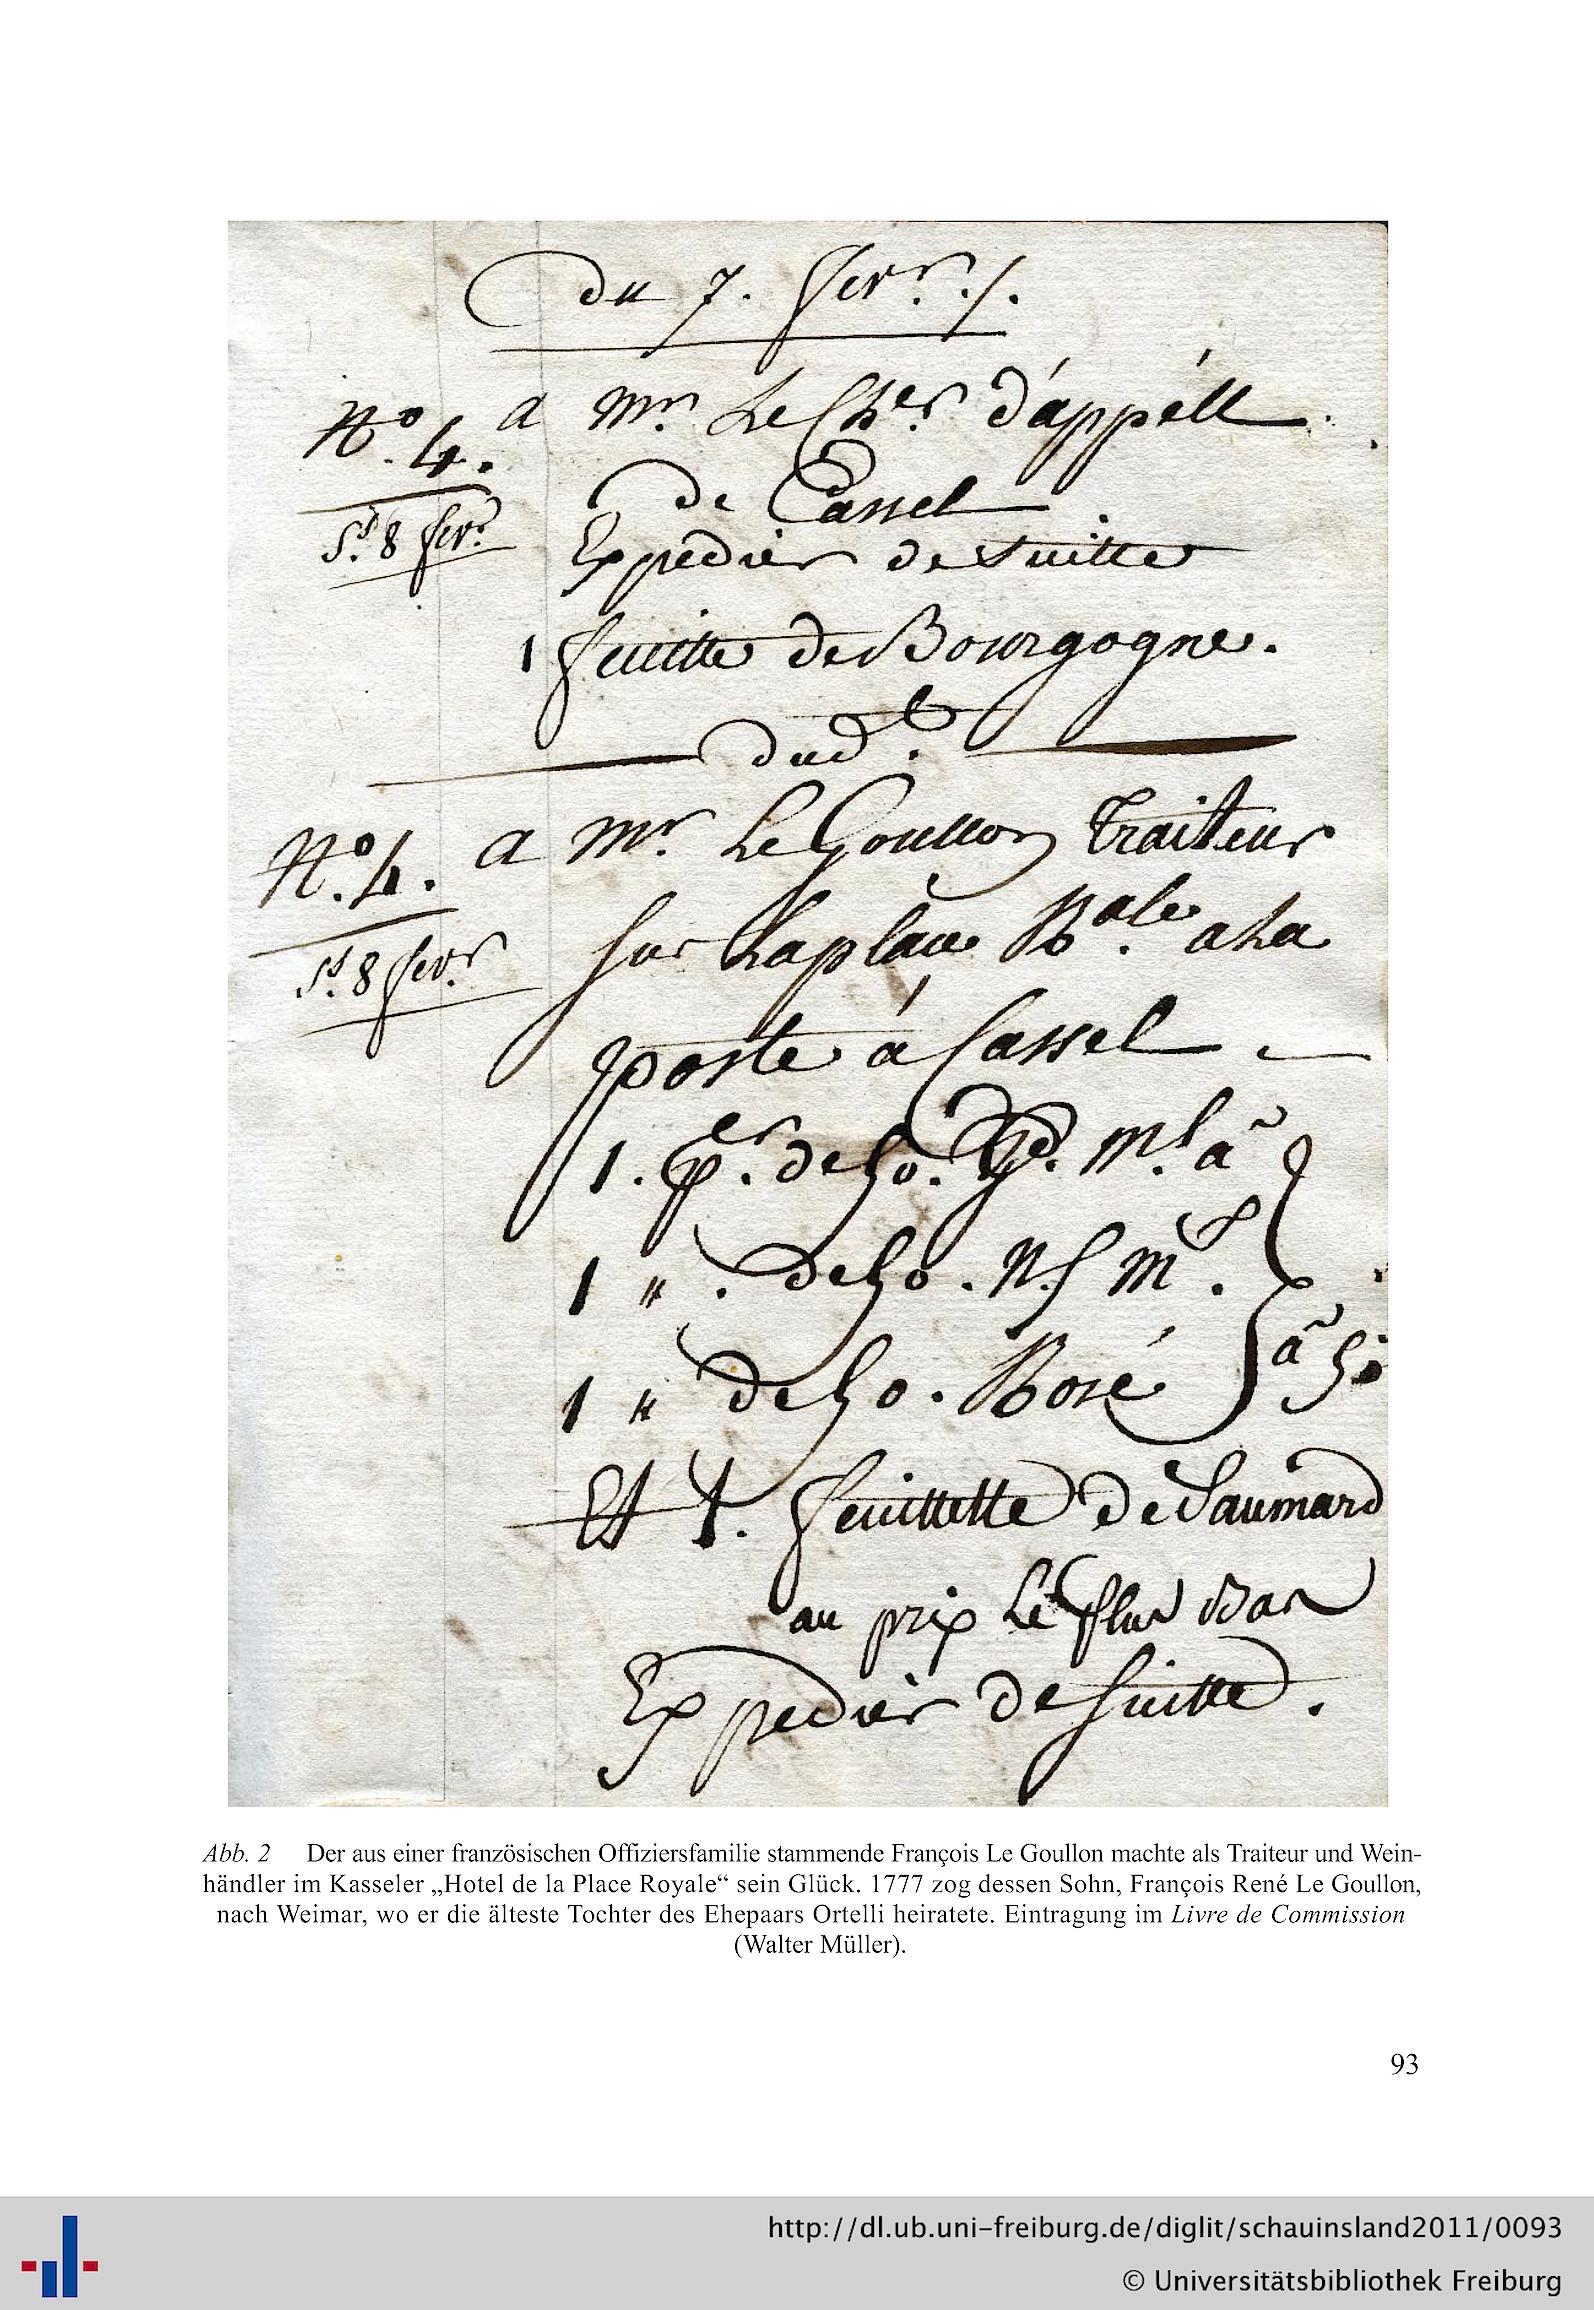 du 7. fevr. /.
No. 4. a Mr. Le Cher. d'appéll
de Cassel
St. 8 fevr. Expedier de suitte
1 feuitte de Bourgogne.
dud.t
No. 4. a Mr. Le Goullon Traiteur
sur La place R.ale a La
St. 8 fevr.
poste á Cassel
1. p. de 50. Gd. M. a
1 " . de 50. N. f M.
1 " de 50. Rosé a 50
Et 1. feuillette de Saumard
au prix Le plus Bas
Expedier de suitte.
Abb. 2 Der aus einer französischen Offiziersfamilie stammende François Le Goullon machte als Traiteur und Wein-
händler im Kasseler „Hotel de la Place Royale“ sein Glück. 1777 zog dessen Sohn, François René Le Goullon,
nach Weimar, wo er die älteste Tochter des Ehepaars Ortelli heiratete. Eintragung im Livre de Commission
(Walter Müller).
93
http://dl.ub.uni-freiburg.de/diglit/schauinsland2011/0093
© Universitätsbibliothek Freiburg